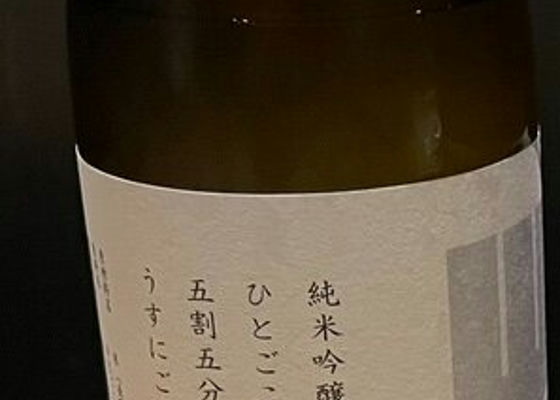 純米吟醸
ひとごこ
五割五分
うすにご